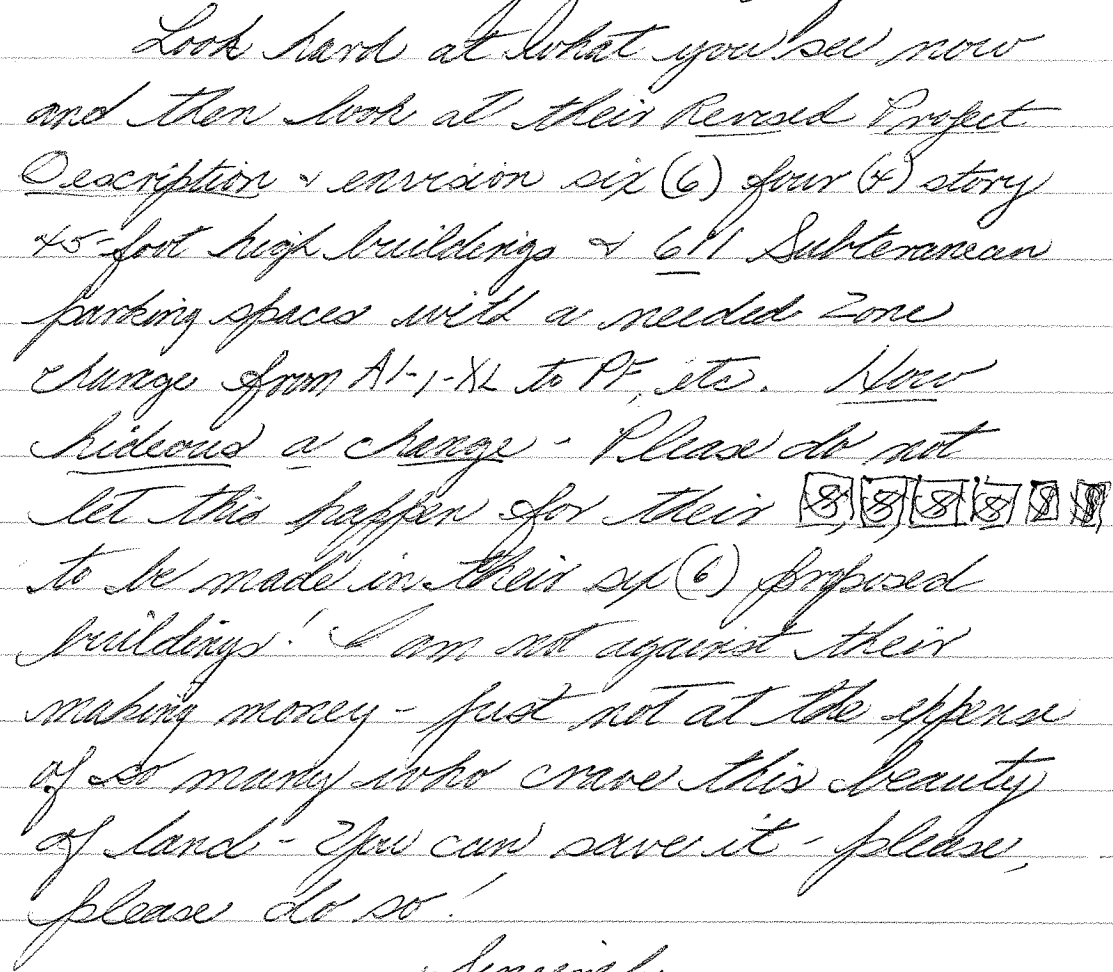 Look hard at what you see now
and then look at their Revised Project
Description & envision six (6) four (4) story
45-foot high buildings & 611 Subteranean
parking spaces with a needed Zone
change from A1-1-XL to PF, etc. How
hideous a change - Please do not
let this happen for their $ $ $ $ $ $
to be made in their six (6) proposed
buildings! I am not against their
making money - just not at the expense
of so many who crave this beauty
of land - You can save it - please,
please do so!